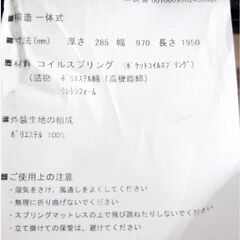 ■構造 一体式
■寸法(mm) 厚さ 285 幅 970 長さ 1950
■材料 コイルスプリング (ポケットコイルスプリング)
(詰物) ポリエステル綿(高機能綿)
ウレタンフォーム
■外装生地の組成
ポリエステル 100%
■ご使用上の注意
・湿気をさけ、風通しをよくしてください
・無理に折り曲げないでください
・スプリングマットレスの上で飛び跳ねたりしないでください
・立て掛けての保管は、避けてください